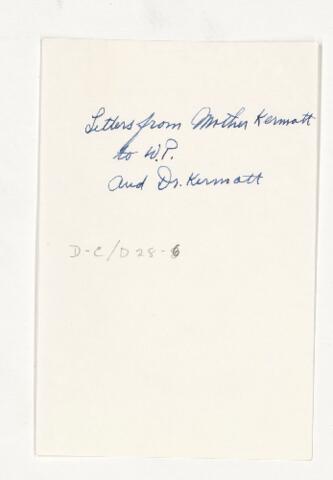 Letters from Mother Kermott
to W.P.
and Dr. Kermott
D-C/D28-6